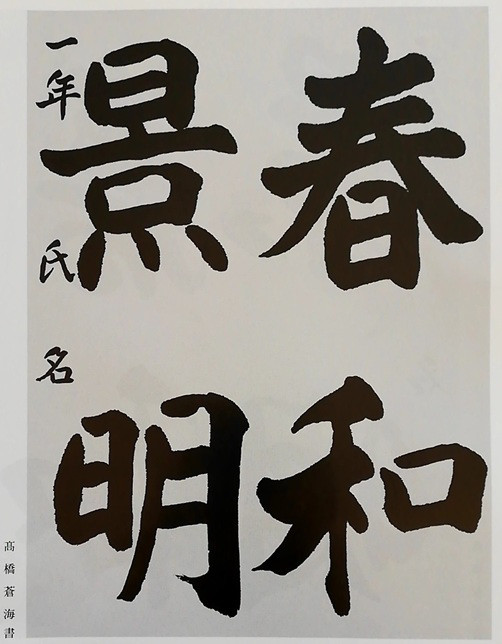 春和
景明
一年 氏名
髙橋蒼海書